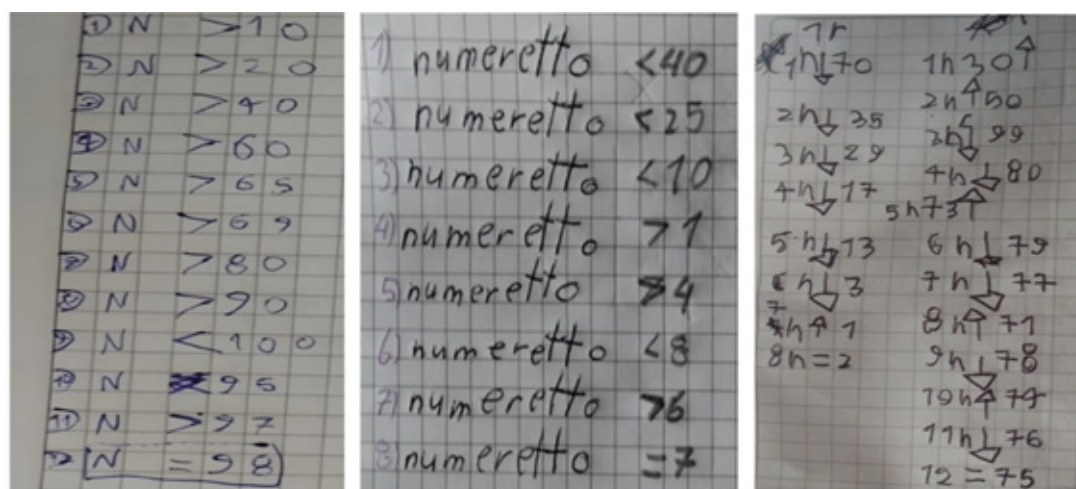 ① N > 10
② N > 20
③ N > 40
④ N > 60
⑤ N > 65
⑥ N > 69
⑦ N > 80
⑧ N > 90
⑨ N < 100
⑩ N 95
⑪ N > 97
12 N = 98
1) numeretto <40
2) numeretto <25
3) numeretto <10
4) numeretto >1
5) numeretto >4
6) numeretto <8
7) numeretto >6
8) numeretto =7
1r
1n↓70
2n↓ 35
3n↓29
4n↓17
5n↓13
n↓3
7n↑ 1
8n=2
1n30↑
2n↑50
3n↓99
4n↓80
5n73↑
6n↓79
7n↓77
8n↑71
9n↓78
10n↑74
11n↓76
12=75